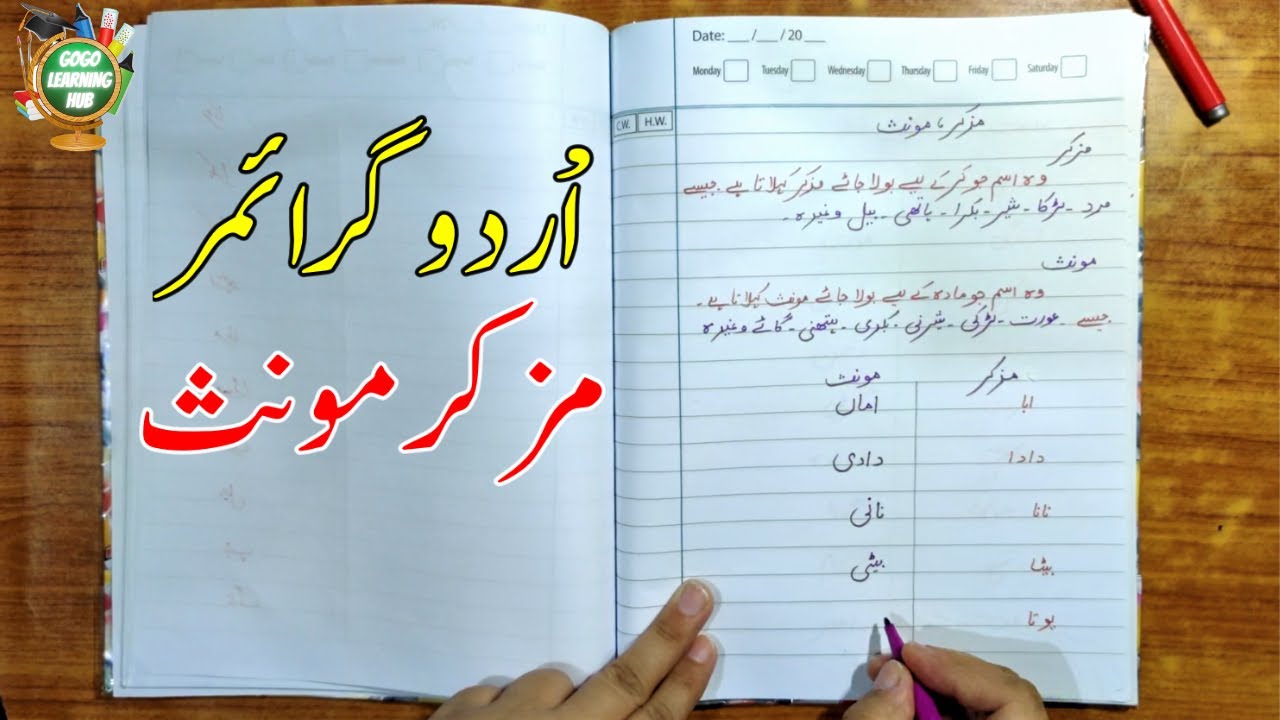 GOGO
LEARNING
HUB
اُردو گرائمر
مزکر مونث
Date: ___/___/20___
Monday Tuesday Wednesday Thursday Friday Saturday
C.W. H.W.
مزکر، مونث
مزکر
وہ اسم جو نر کے لیے بولا جائے مزکر کہلاتا ہے۔ جیسے
مرد - لڑکا - شیر - بکرا - ہاتھی - بیل وغیرہ -
مونث
وہ اسم جو مادہ کے لیے بولا جائے مونث کہلاتا ہے۔
جیسے - عورت - لڑکی - شیرنی - بکری - ہتھنی - گائے وغیرہ
مزکر مونث
ابا اماں
دادا دادی
نانا نانی
بیٹا بیٹی
پوتا